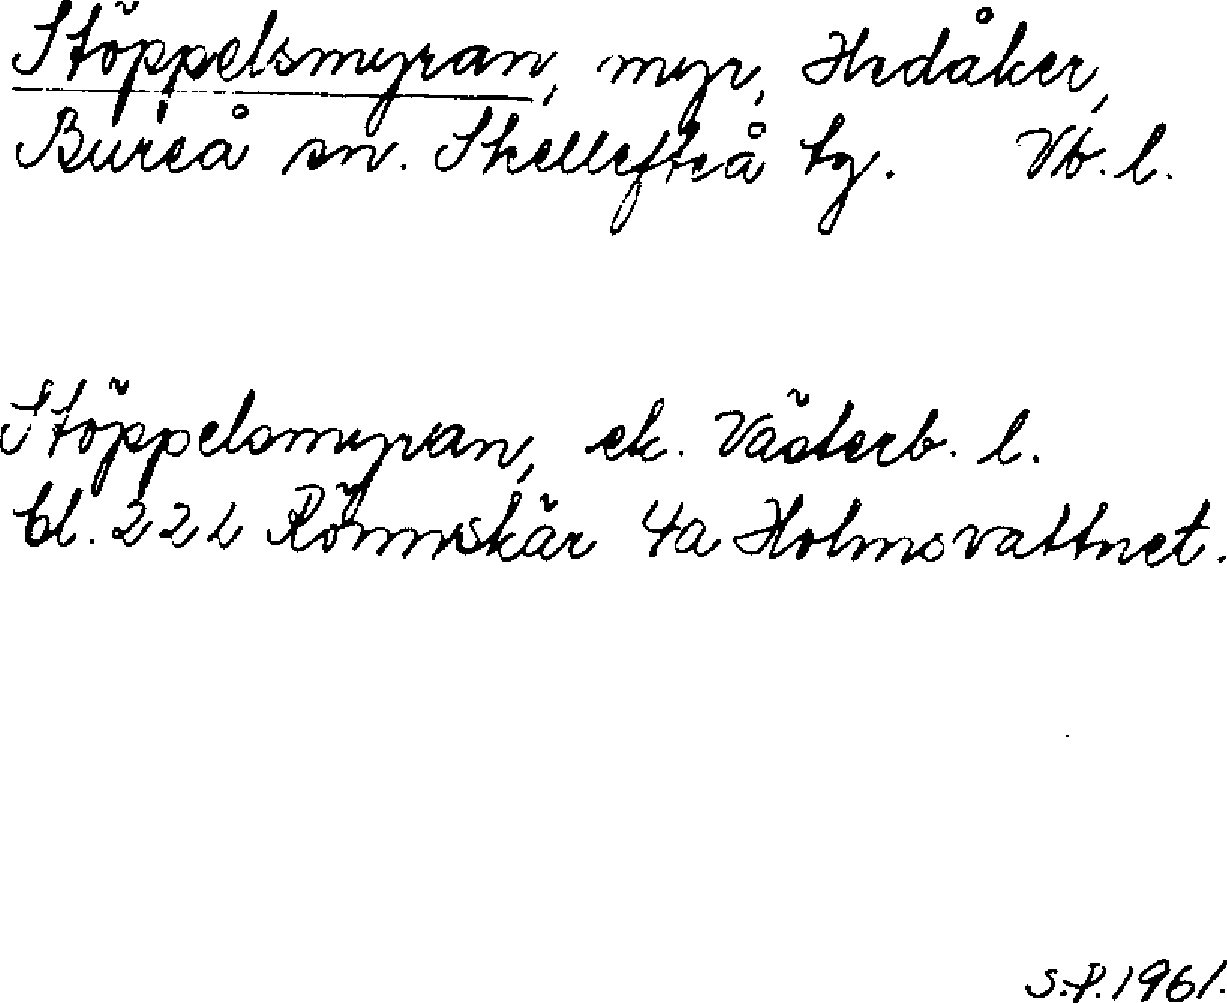 Stöppelsmyran, myr, Hedåker,
Bureå sn. Skellefteå tg. Vb. l.
Stöppelsmyran, ek. Västerb. l.
bl. 22 L Rönnskär 4a Holmsvattnet.
S.P. 1961.